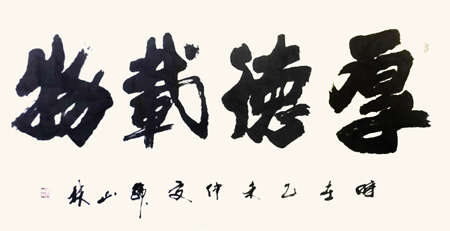 厚德載物
時在乙未仲夏 山